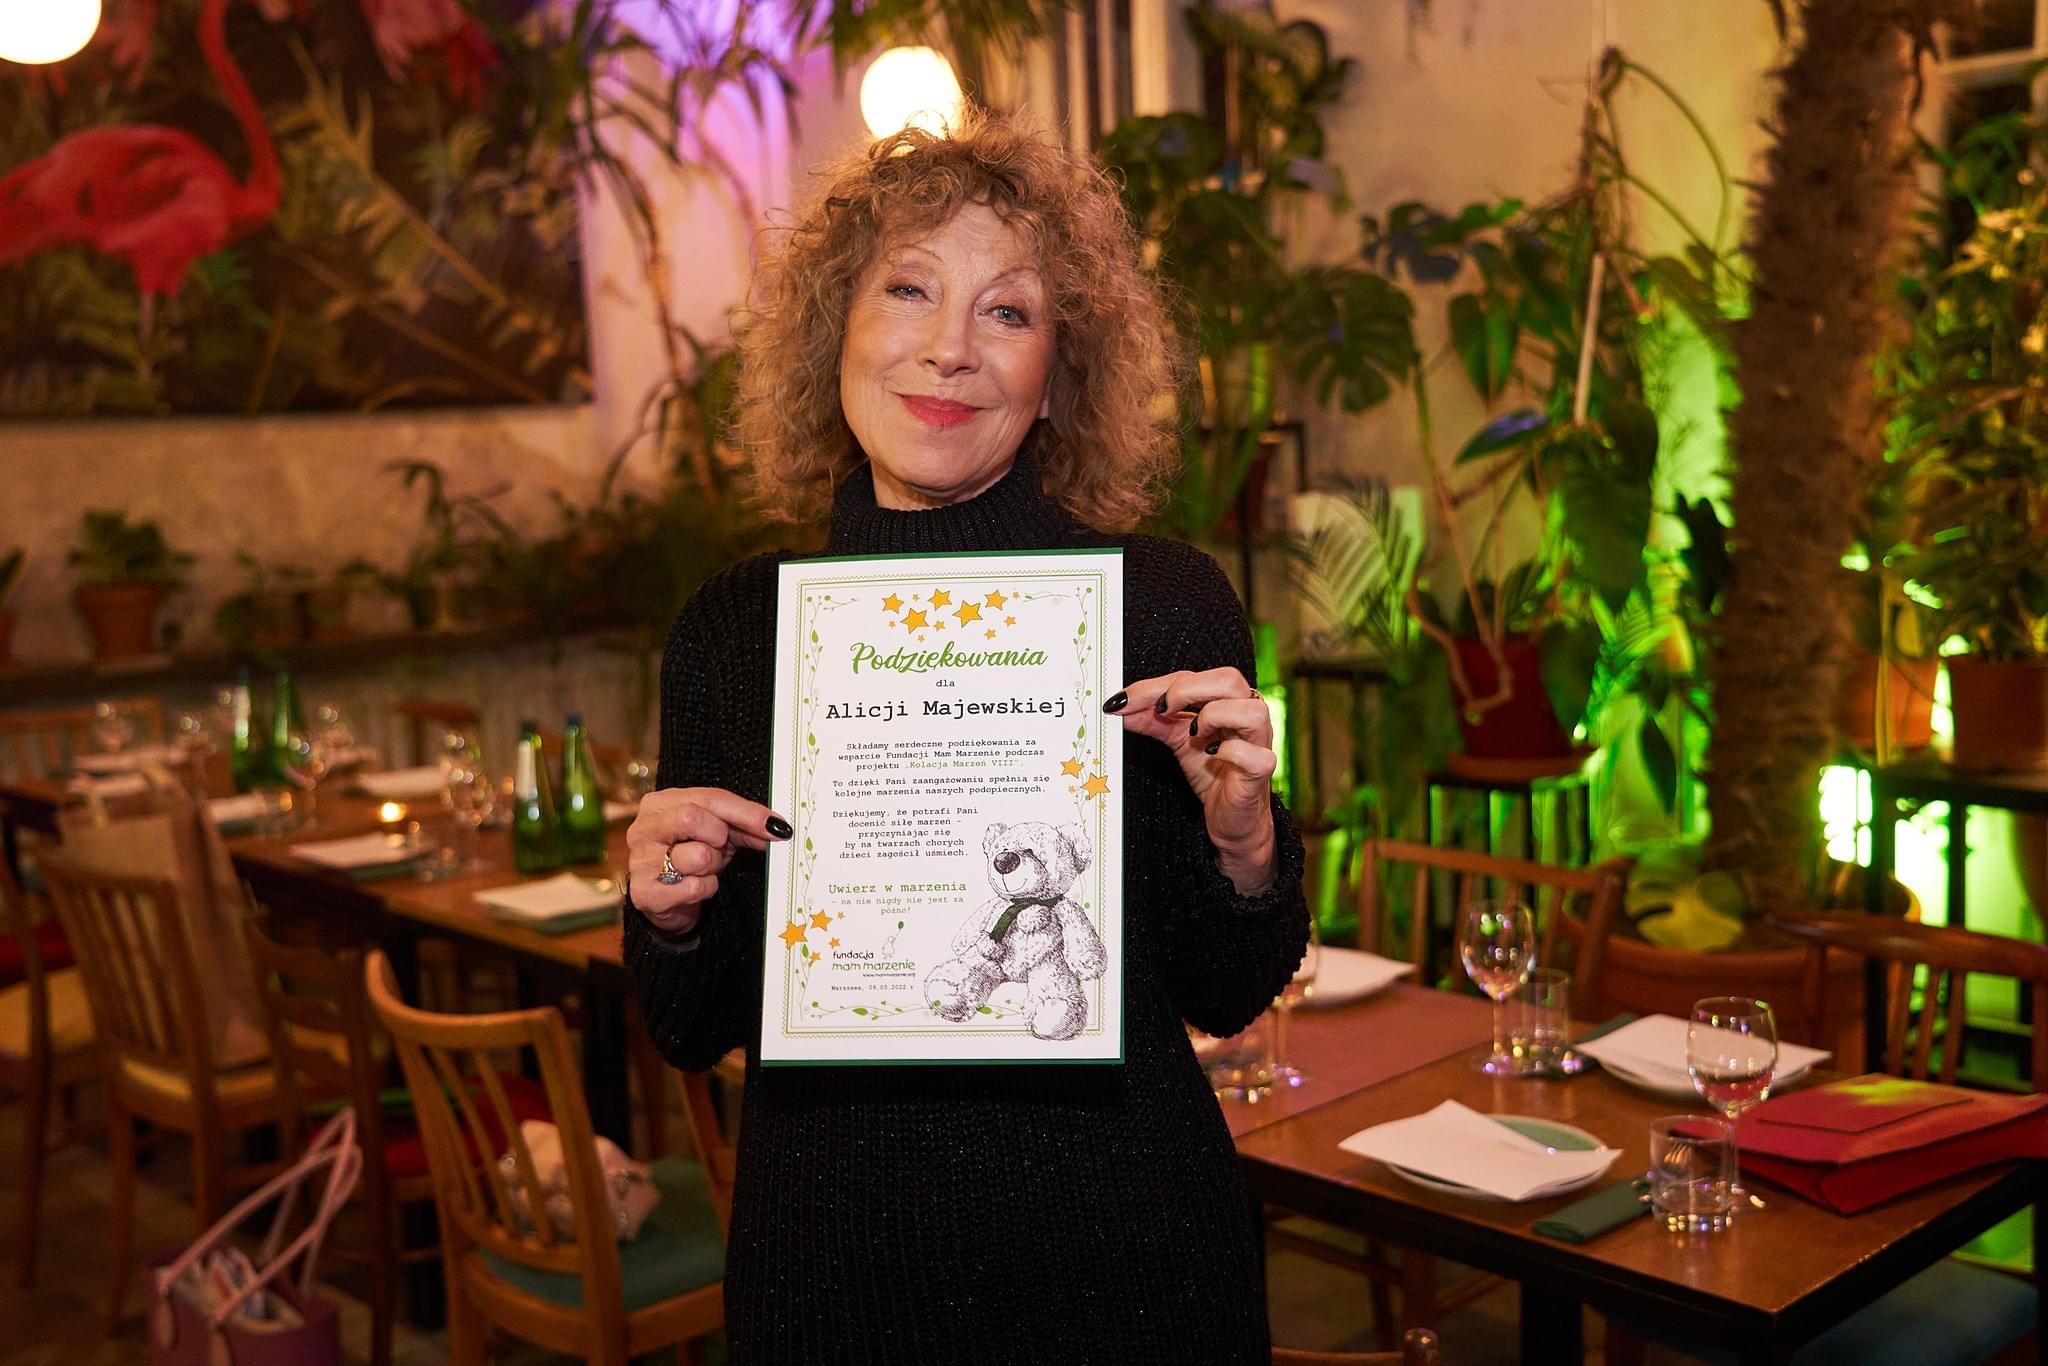 Podziękowania
dla
Alicji Majewskiej
Składamy serdeczne podziękowania za
wsparcie Fundacji Mam Marzenie podczas
projektu „Kolacja Marzeń VIII".
To dzięki Pani zaangażowaniu spełnią się
kolejne marzenia naszych podopiecznych.
Dziękujemy, że potrafi Pani
docenić siłę marzeń –
przyczyniając się
by na twarzach chorych
dzieci zagościł uśmiech.
Uwierz w marzenia
– na nie nigdy nie jest za
późno!
fundacja
mam marzenie
www.mammarzenie.org
Warszawa, 08.03.2022 r